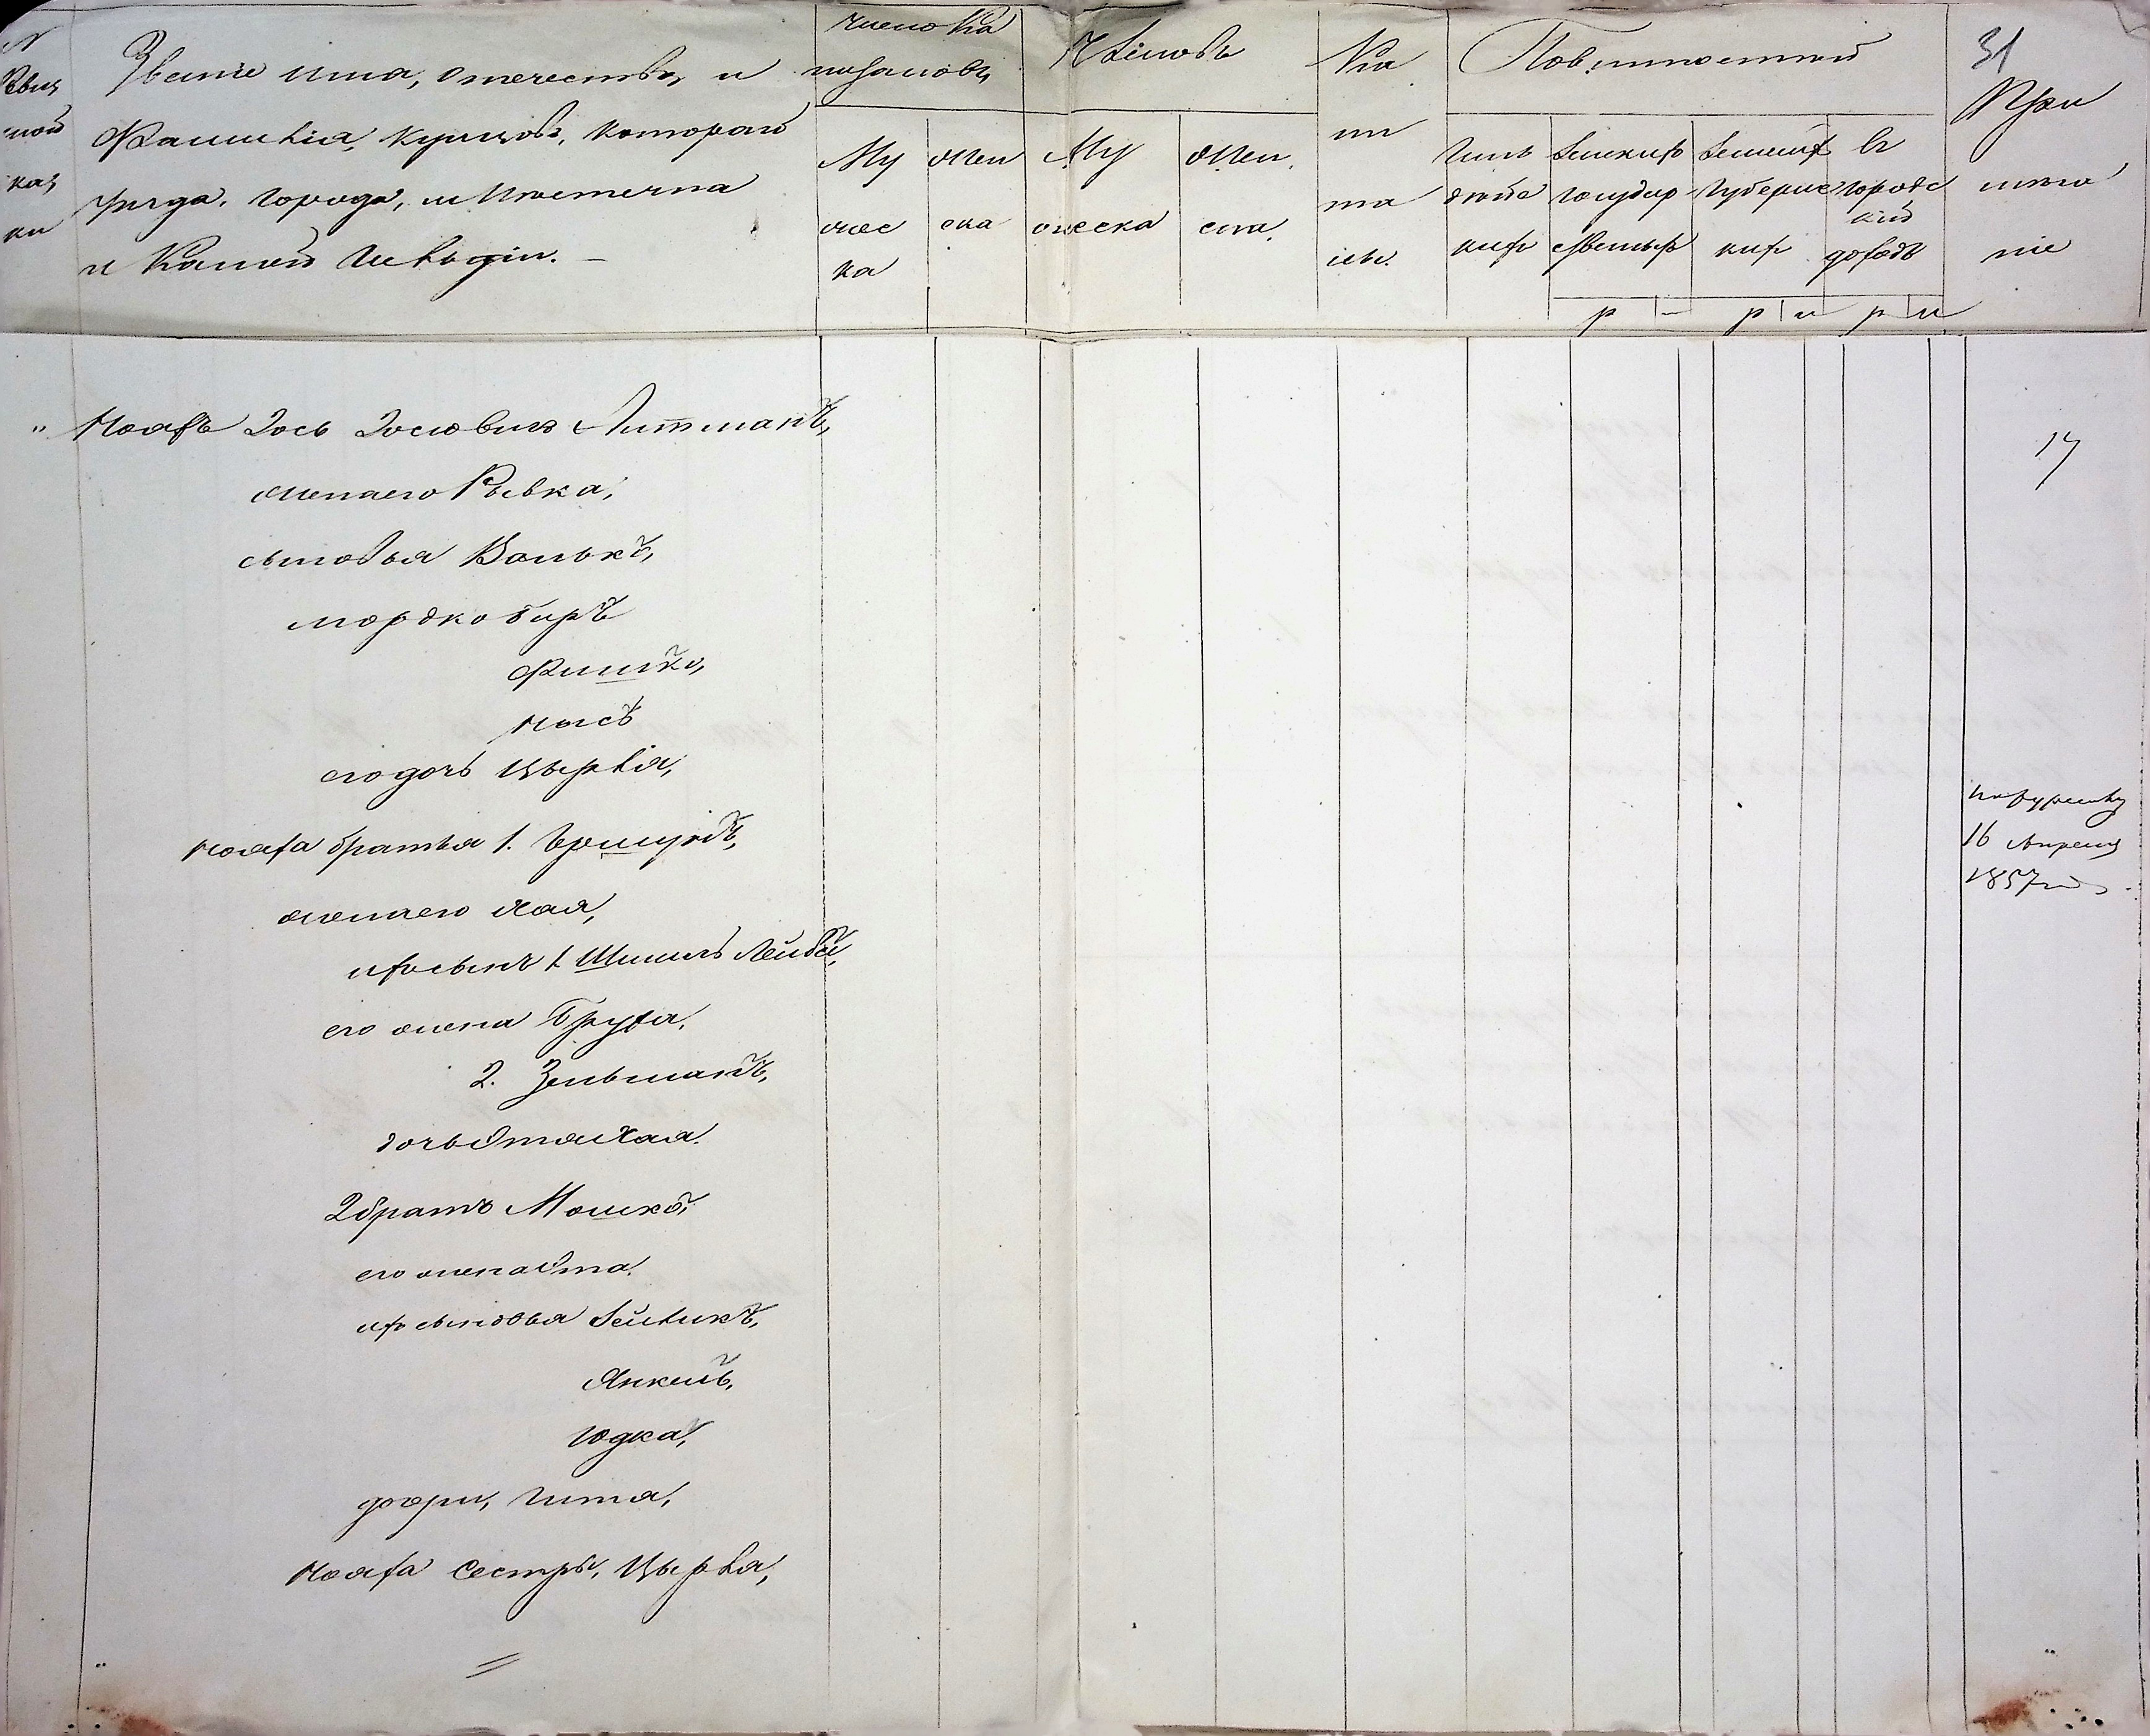 31
Званіе имя, отечество, и
Фамилія, купцовъ, котораго
уѣзда, города, и Мѣстечка
и Какой Гильдіи.
число ка
питаловъ
Му
жес
ка
жен
ска
Членовъ
Му
жеска
жен.
ска.
Ка
пи
та
лы.
Повинностей
Гиль
дейс
кихъ
Земскихъ
государ
ственыхъ
Земскихъ
Губернс
кихъ
въ
городс
кій
доходъ
р
р к р к
При
мѣча
ніе
" Ноахъ Зось Зосіовичъ Литманъ,
жена его Рывка,
сыновья Волькъ,
мордко биръ
Фишко,
Нысъ
его дочь Цырля,
Ноаха братья 1. Гершунъ,
жена его Хая,
ихъ сынъ 1 Шмиль Лейба,
его жена Бруха,
2. Зельманъ,
дочь Этя Хая.
2 братъ Мошко,
его жена Эта.
ихъ сыновья Зейликъ,
Янкель,
Юдка,
дочери, Гитя,
Ноаха сестры, Цырля,
17
16 Апреля
1857 года